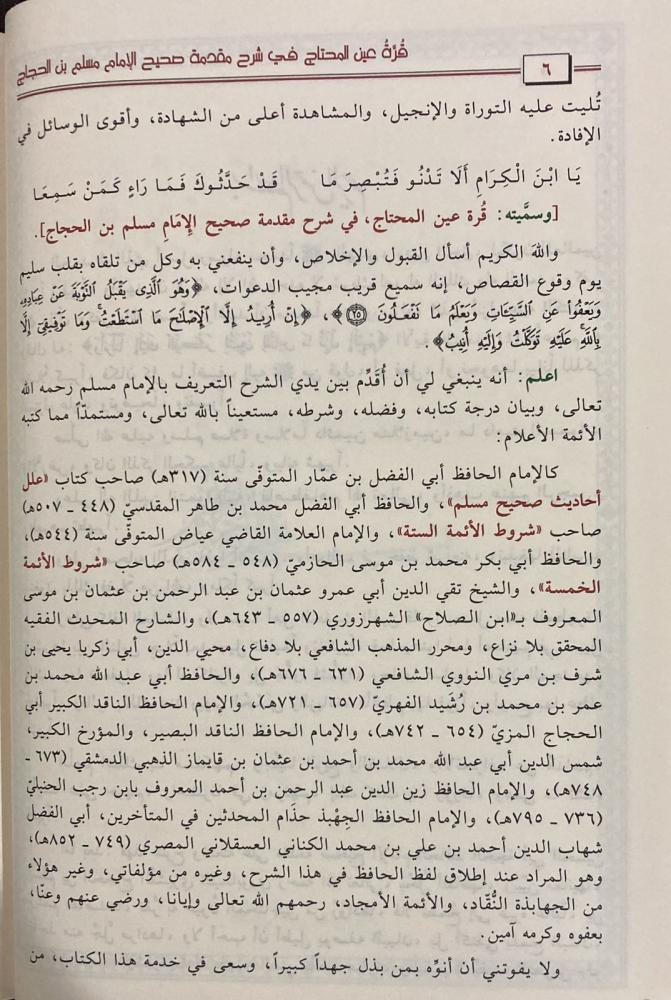 قُرَّةُ عين المحتاج في شرح مقدمة صحيح الإمام مسلم بن الحجاج
٦
تُليت عليه التوراة والإنجيل، والمشاهدة أعلى من الشهادة، وأقوى الوسائل في
الإفادة.
يَا ابْنَ الْكِرَامِ أَلَا تَدْنُو فَتُبْصِرَ مَا قَدْ حَدَّثُوكَ فَمَا رَاءٍ كَمَنْ سَمِعَا
[وسمَّيته: قُرة عين المحتاج، في شرح مقدمة صحيح الإمَامِ مسلم بن الحجاج].
والله الكريم أسأل القبول والإخلاص، وأن ينفعني به وكل من تلقاه بقلب سليم
يوم وقوع القصاص، إنه سميع قريب مجيب الدعوات، ﴿وَهُوَ ٱلَّذِى يَقْبَلُ ٱلتَّوْبَةَ عَنْ عِبَادِهِۦ
وَيَعْفُوا۟ عَنِ ٱلسَّيِّـَٔاتِ وَيَعْلَمُ مَا تَفْعَلُونَ ۝٢٥﴾، ﴿إِنْ أُرِيدُ إِلَّا ٱلْإِصْلَٰحَ مَا ٱسْتَطَعْتُ وَمَا تَوْفِيقِىٓ إِلَّا
بِٱللَّهِ عَلَيْهِ تَوَكَّلْتُ وَإِلَيْهِ أُنِيبُ﴾.
اعلم: أنه ينبغي لي أن أُقَدِّم بين يدي الشرح التعريف بالإمام مسلم رحمه الله
تعالى، وبيان درجة كتابه، وفضله، وشرطه، مستعيناً بالله تعالى، ومستمدّاً مما كتبه
الأئمة الأعلام:
كالإمام الحافظ أبي الفضل بن عمّار المتوفّى سنة (٣١٧هـ) صاحب كتاب «علل
أحاديث صحيح مسلم»، والحافظ أبي الفضل محمد بن طاهر المقدسيّ (٤٤٨ ـ ٥٠٧هـ)
صاحب «شروط الأئمة الستة»، والإمام العلامة القاضي عياض المتوفّى سنة (٥٤٤هـ)،
والحافظ أبي بكر محمد بن موسى الحازميّ (٥٤٨ ـ ٥٨٤هـ) صاحب «شروط الأئمة
الخمسة»، والشيخ تقي الدين أبي عمرو عثمان بن عبد الرحمن بن عثمان بن موسى
المعروف بـ«ابن الصلاح» الشهرزوري (٥٥٧ ـ ٦٤٣هـ)، والشارح المحدث الفقيه
المحقق بلا نزاع، ومحرر المذهب الشافعي بلا دفاع، محيي الدين، أبي زكريا يحيى بن
شرف بن مري النووي الشافعي (٦٣١ ـ ٦٧٦هـ)، والحافظ أبي عبد الله محمد بن
عمر بن محمد بن رُشَيد الفهريّ (٦٥٧ ـ ٧٢١هـ)، والإمام الحافظ الناقد الكبير أبي
الحجاج المزيّ (٦٥٤ ـ ٧٤٢هـ)، والإمام الحافظ الناقد البصير، والمؤرخ الكبير،
شمس الدين أبي عبد الله محمد بن أحمد بن عثمان بن قايماز الذهبي الدمشقي (٦٧٣ ـ
٧٤٨هـ)، والإمام الحافظ زين الدين عبد الرحمن بن أحمد المعروف بابن رجب الحنبليّ
(٧٣٦ ـ ٧٩٥هـ)، والإمام الحافظ الجِهْبذ حذَام المحدثين في المتأخرين، أبي الفضل
شهاب الدين أحمد بن علي بن محمد الكناني العسقلاني المصري (٧٤٩ ـ ٨٥٢هـ)،
وهو المراد عند إطلاق لفظ الحافظ في هذا الشرح، وغيره من مؤلفاتي، وغير هؤلاء
من الجهابذة النُّقّاد، والأئمة الأمجاد، رحمهم الله تعالى وإيانا، ورضي عنهم وعنّا،
بعفوه وكرمه آمين.
ولا يفوتني أن أنوِّه بمن بذل جهداً كبيراً، وسعى في خدمة هذا الكتاب، من